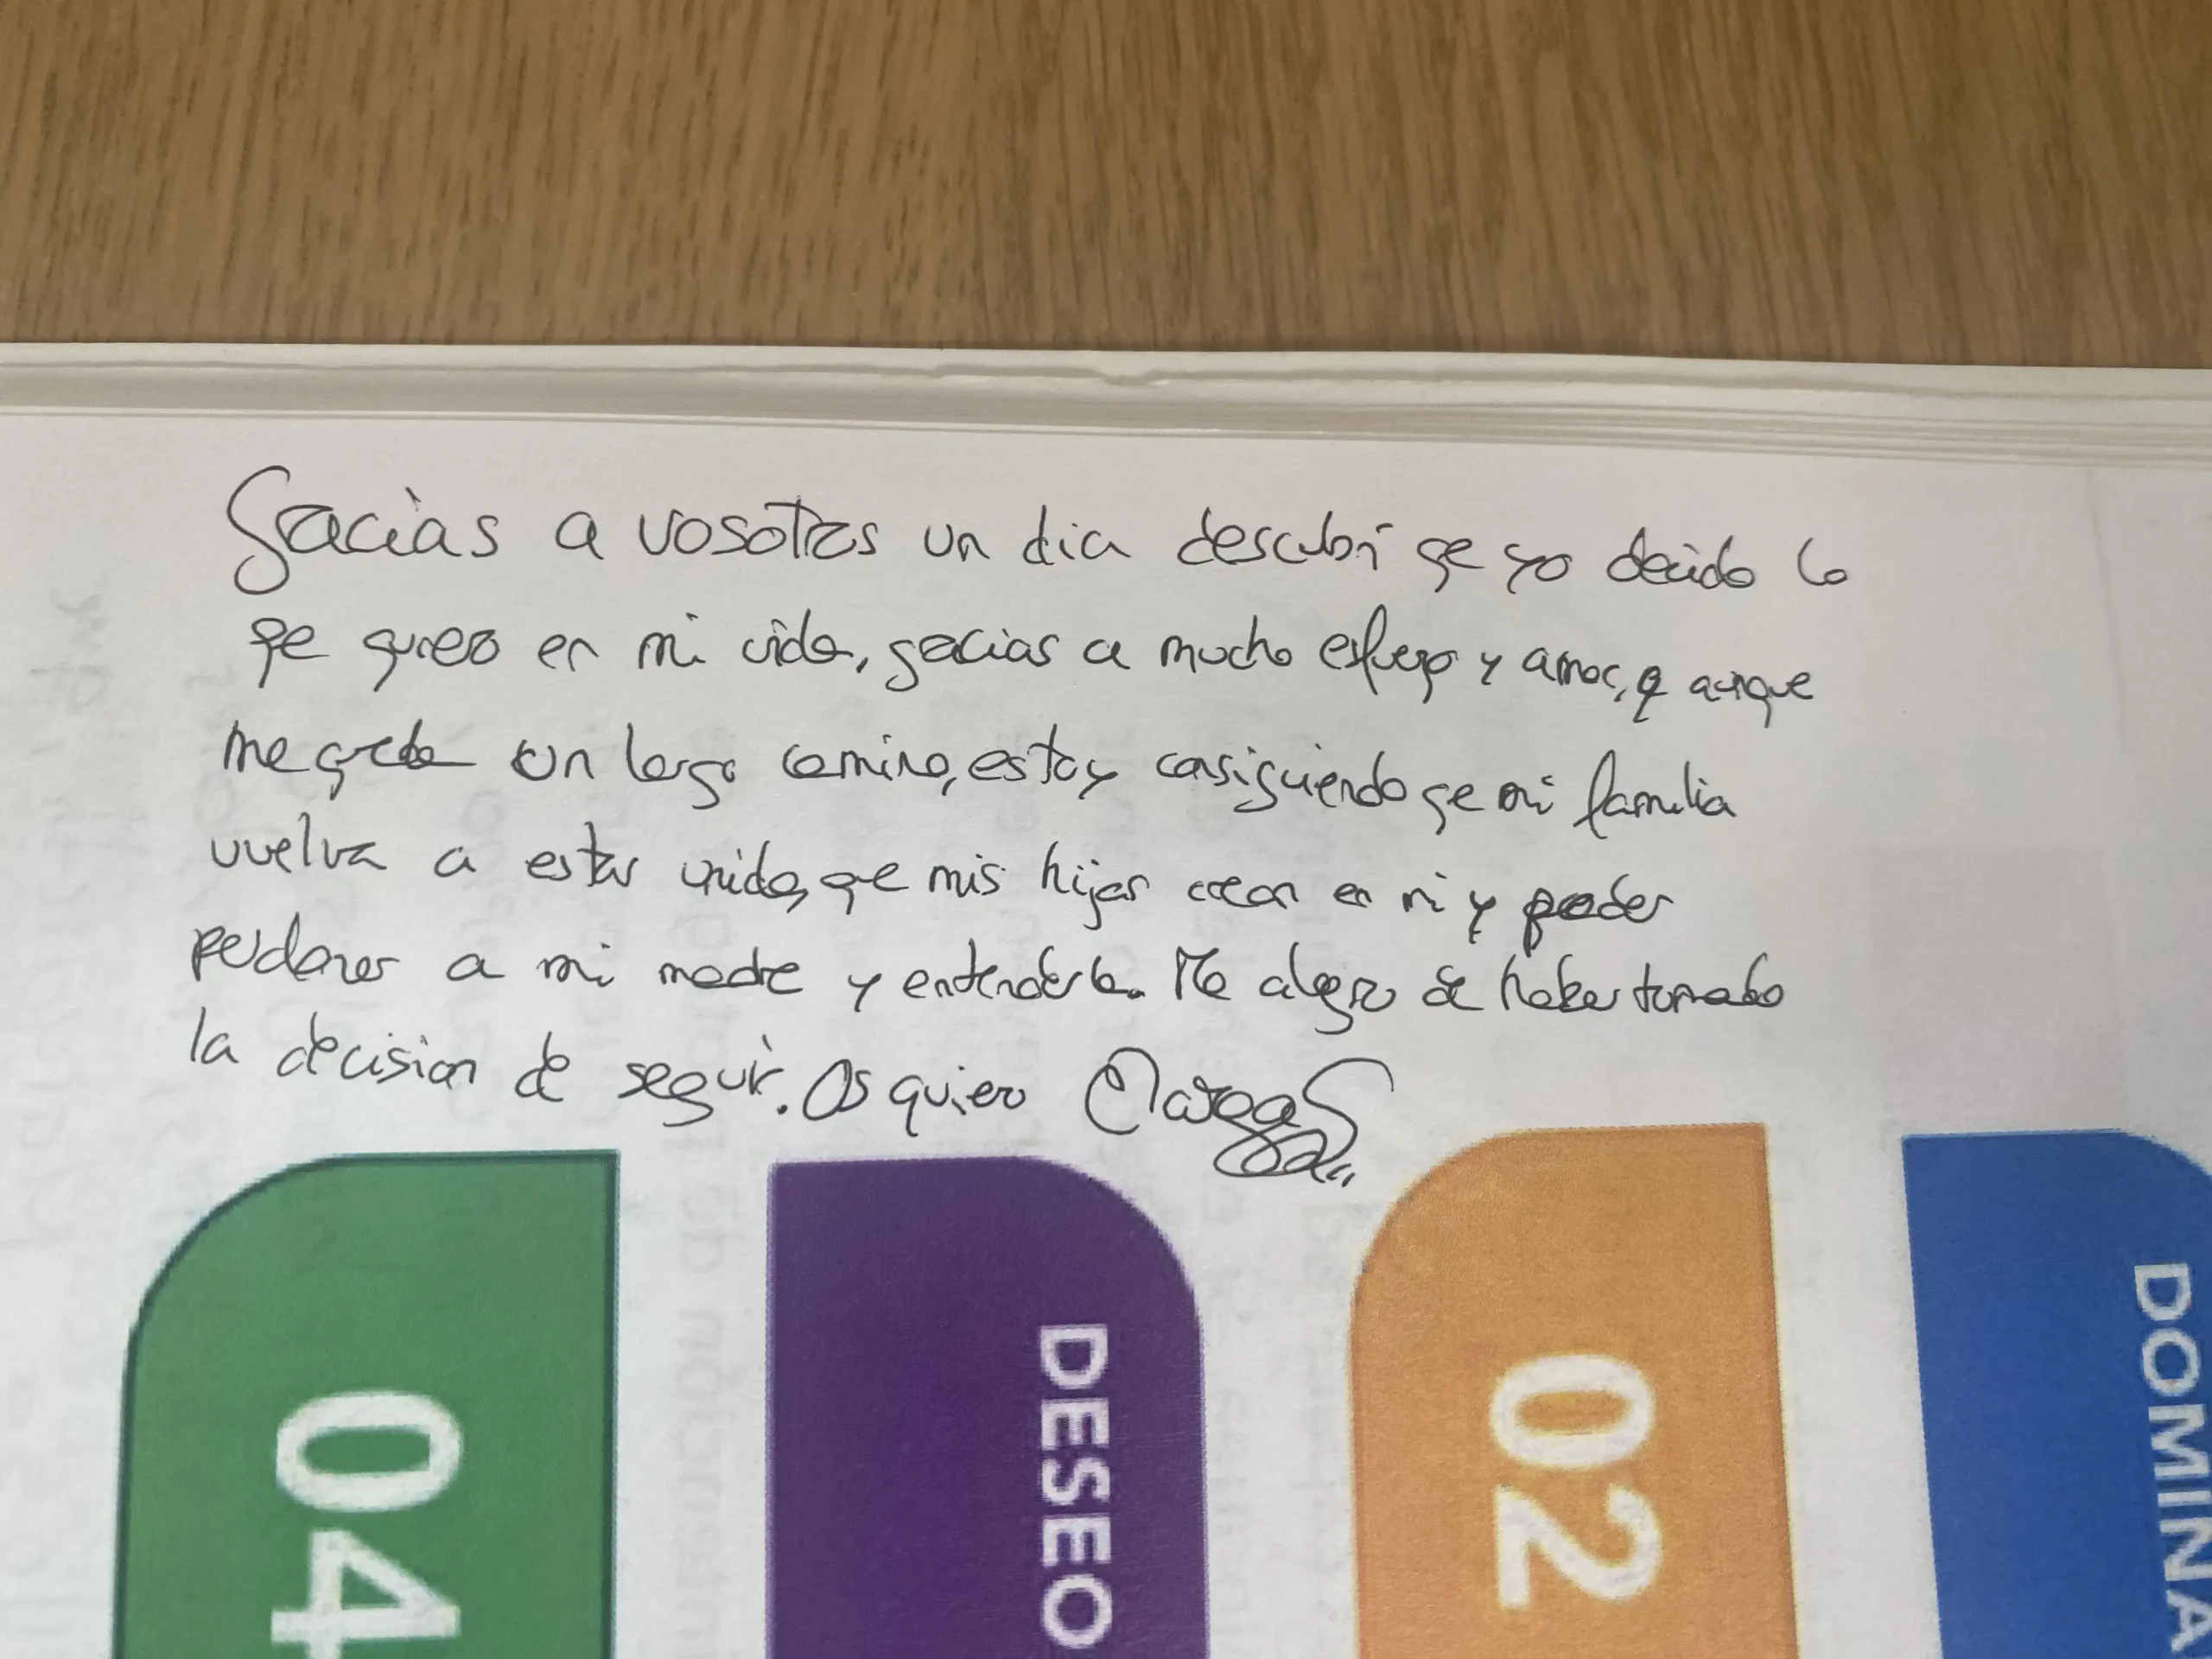 Gracias a vosotros un dia descubrí qe yo decido lo
qe quiero en mi vida, gracias a mucho esfuerzo y amor, q aunque
me queda un largo camino, estoy consiguiendo qe mi familia
vuelva a estar unida, que mis hijos crean en mi y poder
perdonar a mi madre y entenderla. Me alegro de haber tomado
la decision de seguir. Os quiero Marga
04
DESEO
02
DOMINA